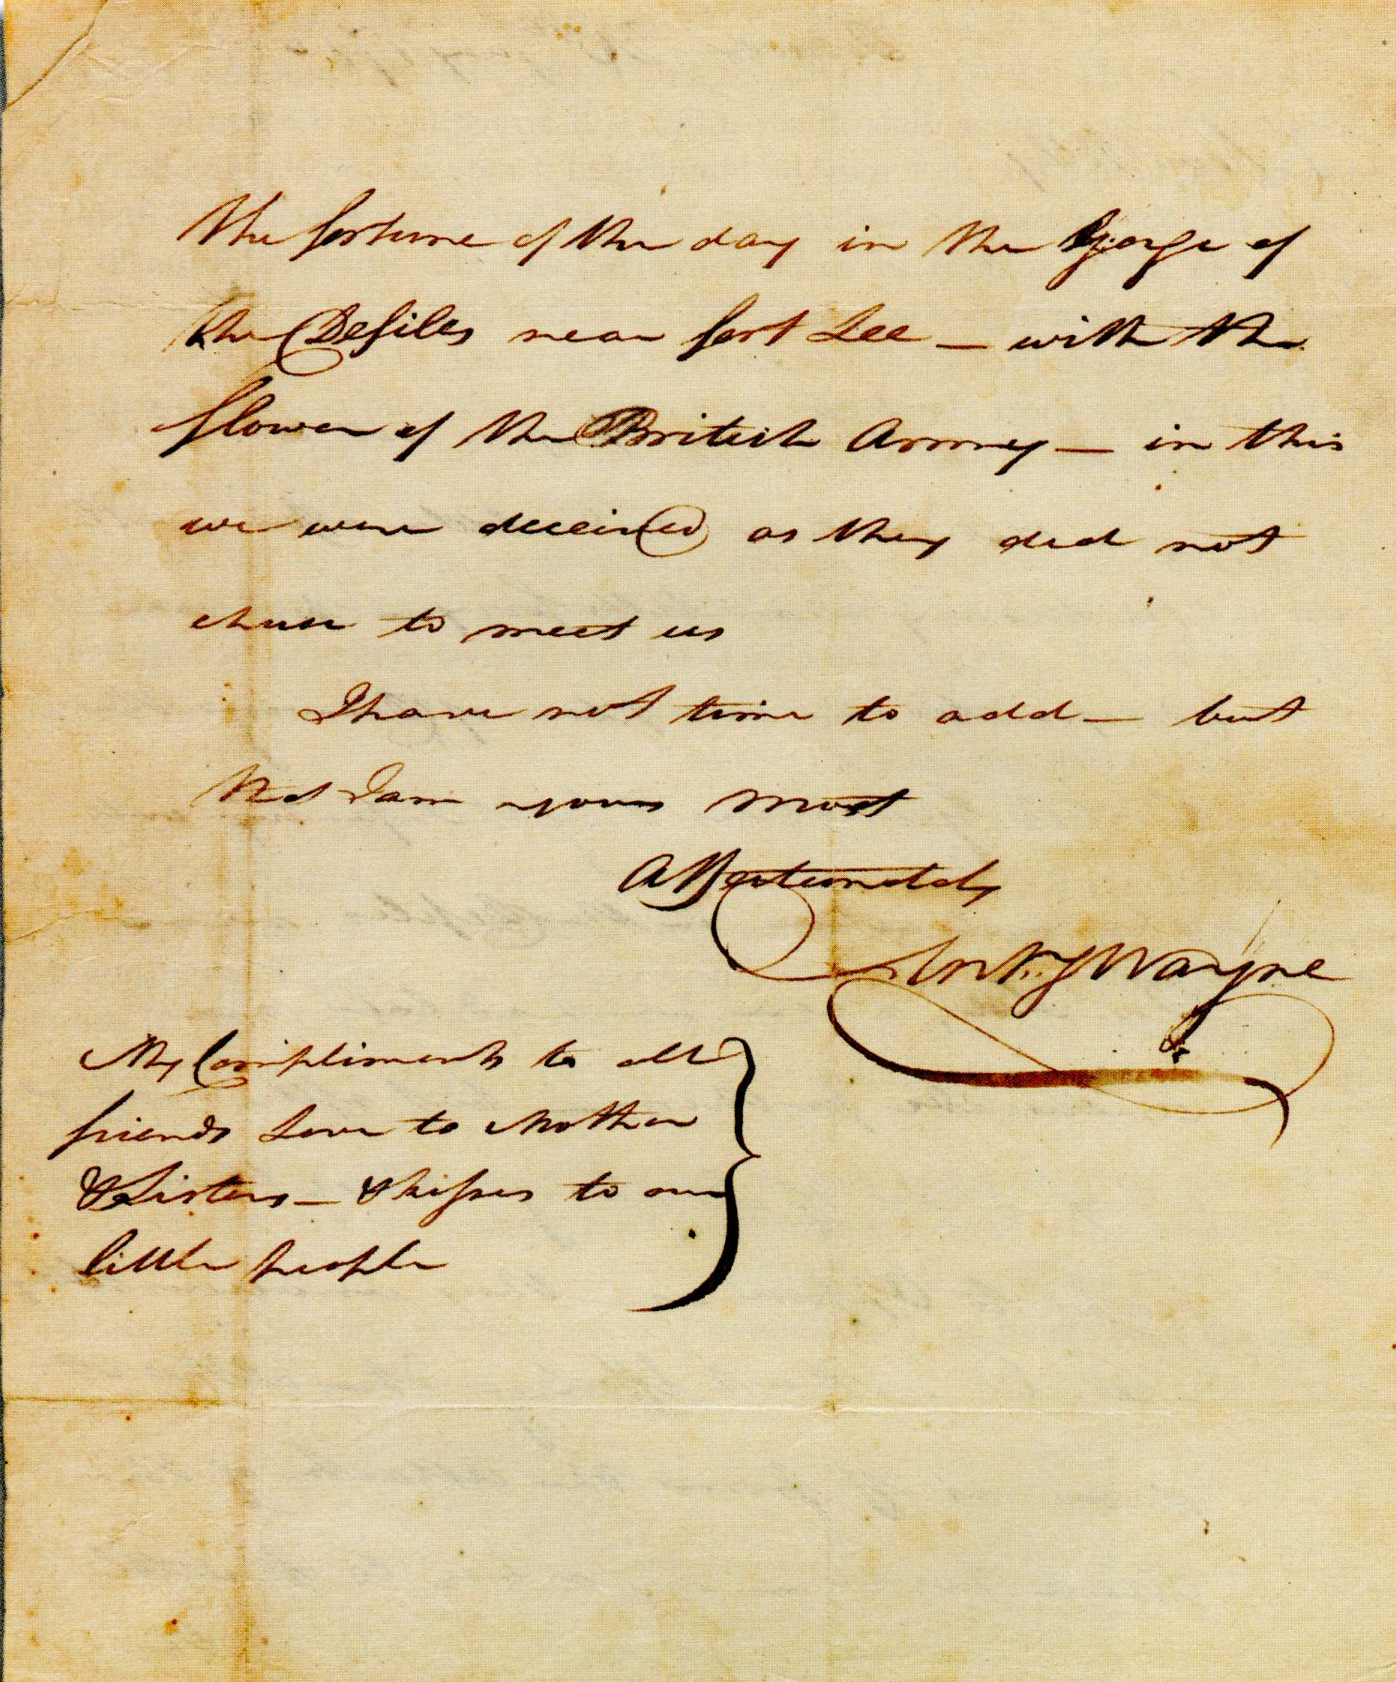 the fortune of the day in the Gorge of
the Defiles near fort Lee — with the
flower of the British Army — in this
we were deceived as they did not
chuse to meet us
I have not time to add — but
that I am yours most
Affectionately
Ant'y Wayne
My Compliments to all
friends Love to Mother
& Sisters — & kisses to our
little people